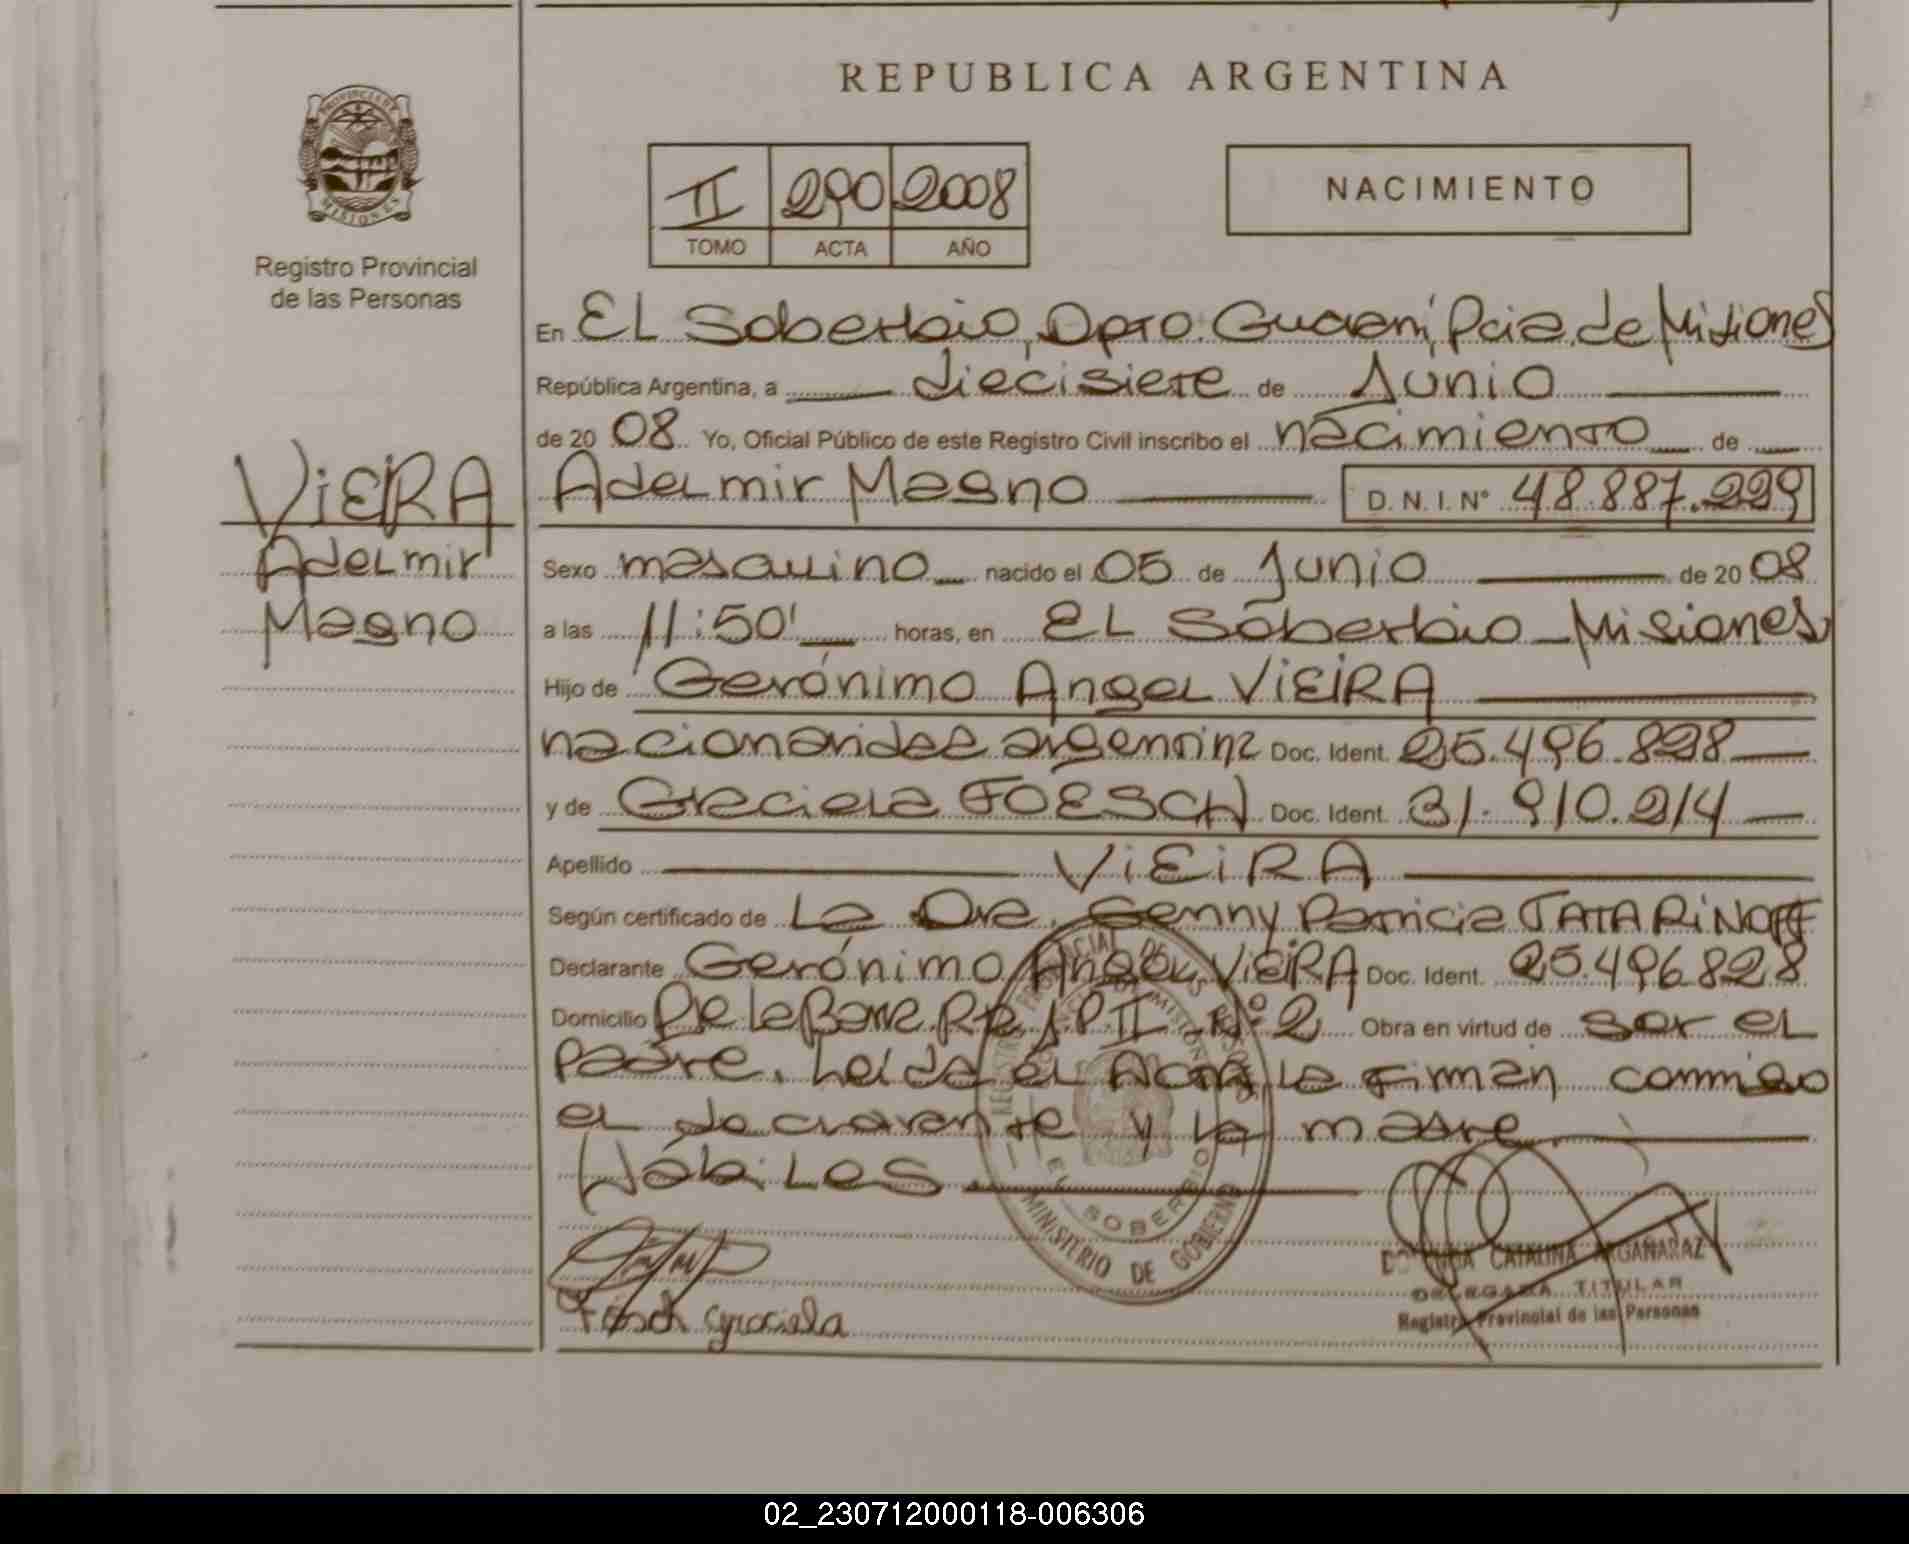 REPUBLICA ARGENTINA
PROVINCIA DE
MISIONES
Registro Provincial
de las Personas
II 290 2008
TOMO ACTA AÑO
NACIMIENTO
En EL Soberbio, Dpto. Guaraní, Pcia. de Misiones
República Argentina, a diecisiete de Junio
de 20 08 Yo, Oficial Público de este Registro Civil inscribo el nacimiento de
VIEIRA
Adelmir
Magno
Adelmir Magno D. N. I. N° 48.887.229
Sexo masculino nacido el 05 de Junio de 20 08
a las 11:50' horas, en EL Soberbio - Misiones
Hijo de Gerónimo Angel VIEIRA
nacionalidad argentina Doc. Ident. 25.496.828
y de Graciela FOESCH Doc. Ident. 31.910.214
Apellido VIEIRA
Según certificado de La Dra. Genny Patricia TATARINOFF
Declarante Gerónimo Angel VIEIRA Doc. Ident. 25.496.828
Domicilio N° 2 Obra en virtud de ser el
padre. Leída el Acta la firman conmigo
el declarante y la madre
Hábiles
REGISTRO PROVINCIAL DE LAS PERSONAS
MISIONES
EL SOBERBIO
MINISTERIO DE GOBIERNO
Graciela
CATALINA ARGAÑARAZ
DELEGADA TITULAR
Registro Provincial de las Personas
02_230712000118-006306